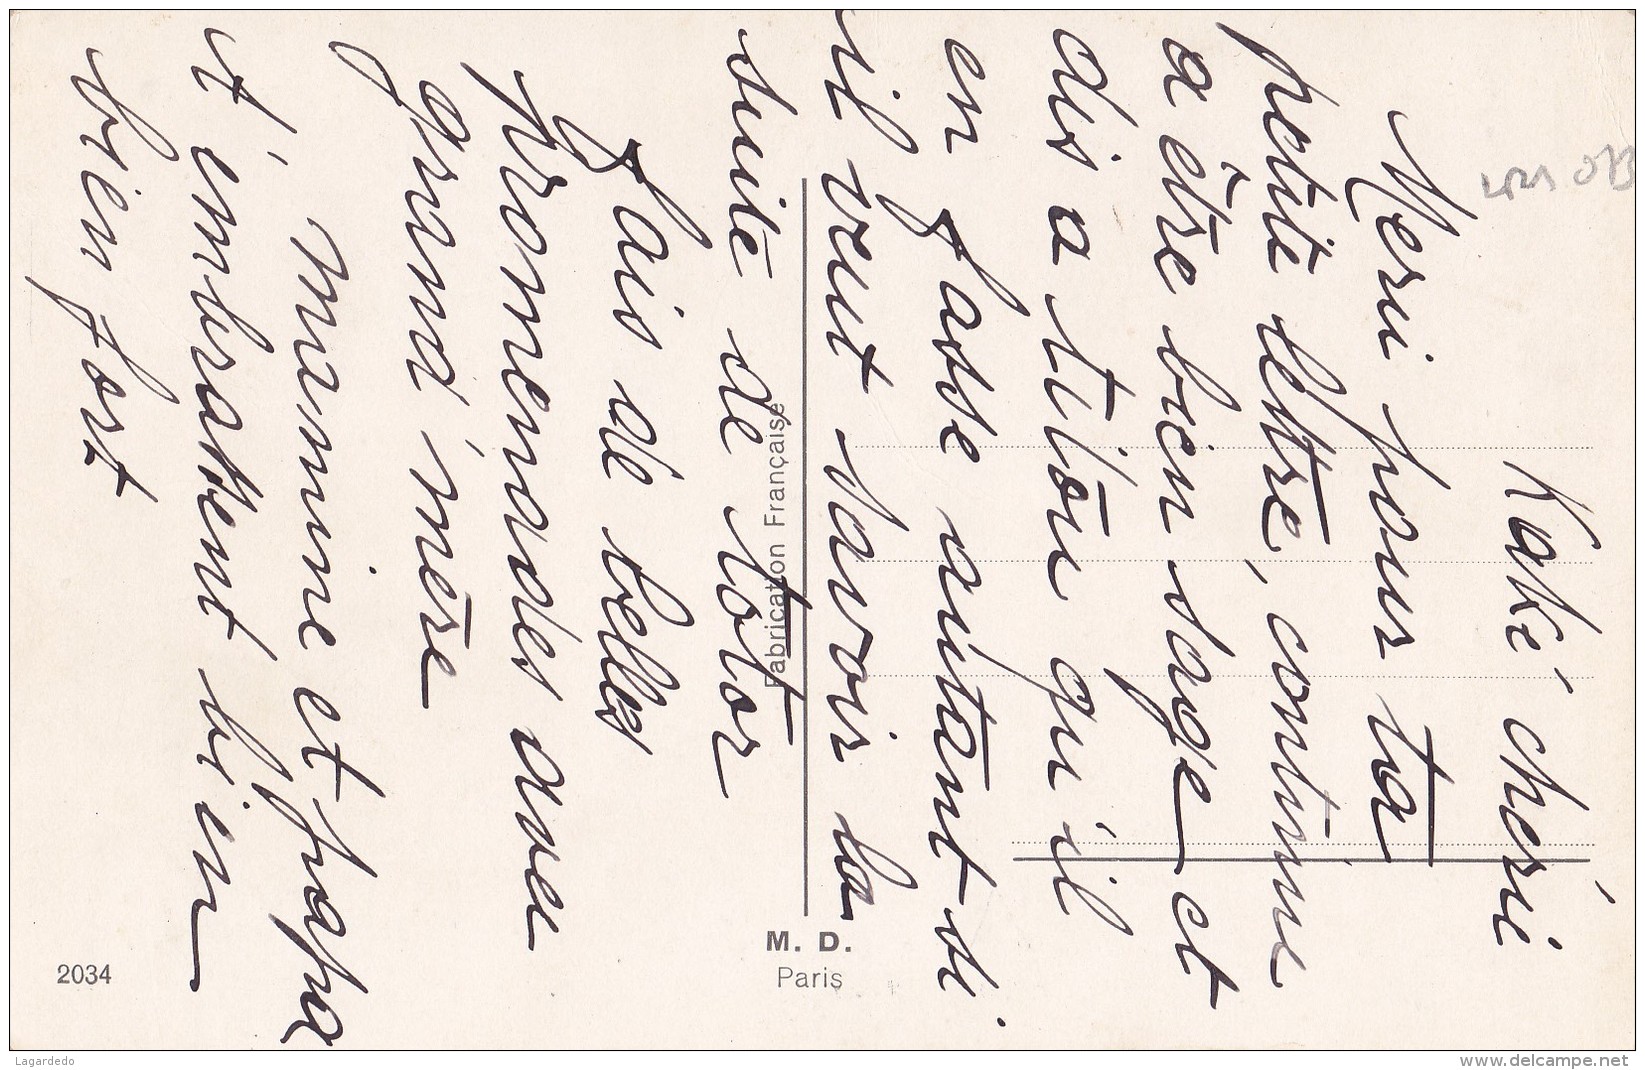 Kaké chérie
Merci pour ta
petite lettre, continue
a être bien sage et
dis a titou qu'il
en fasse autant si
il veut savoir la
suite de totor
fais de belles
promenades avec
grand'mère
mamine et papa
t'embrassent bien
bien fort
Fabrication Française
M. D.
Paris
2034
Lagardedo
www.delcampe.net